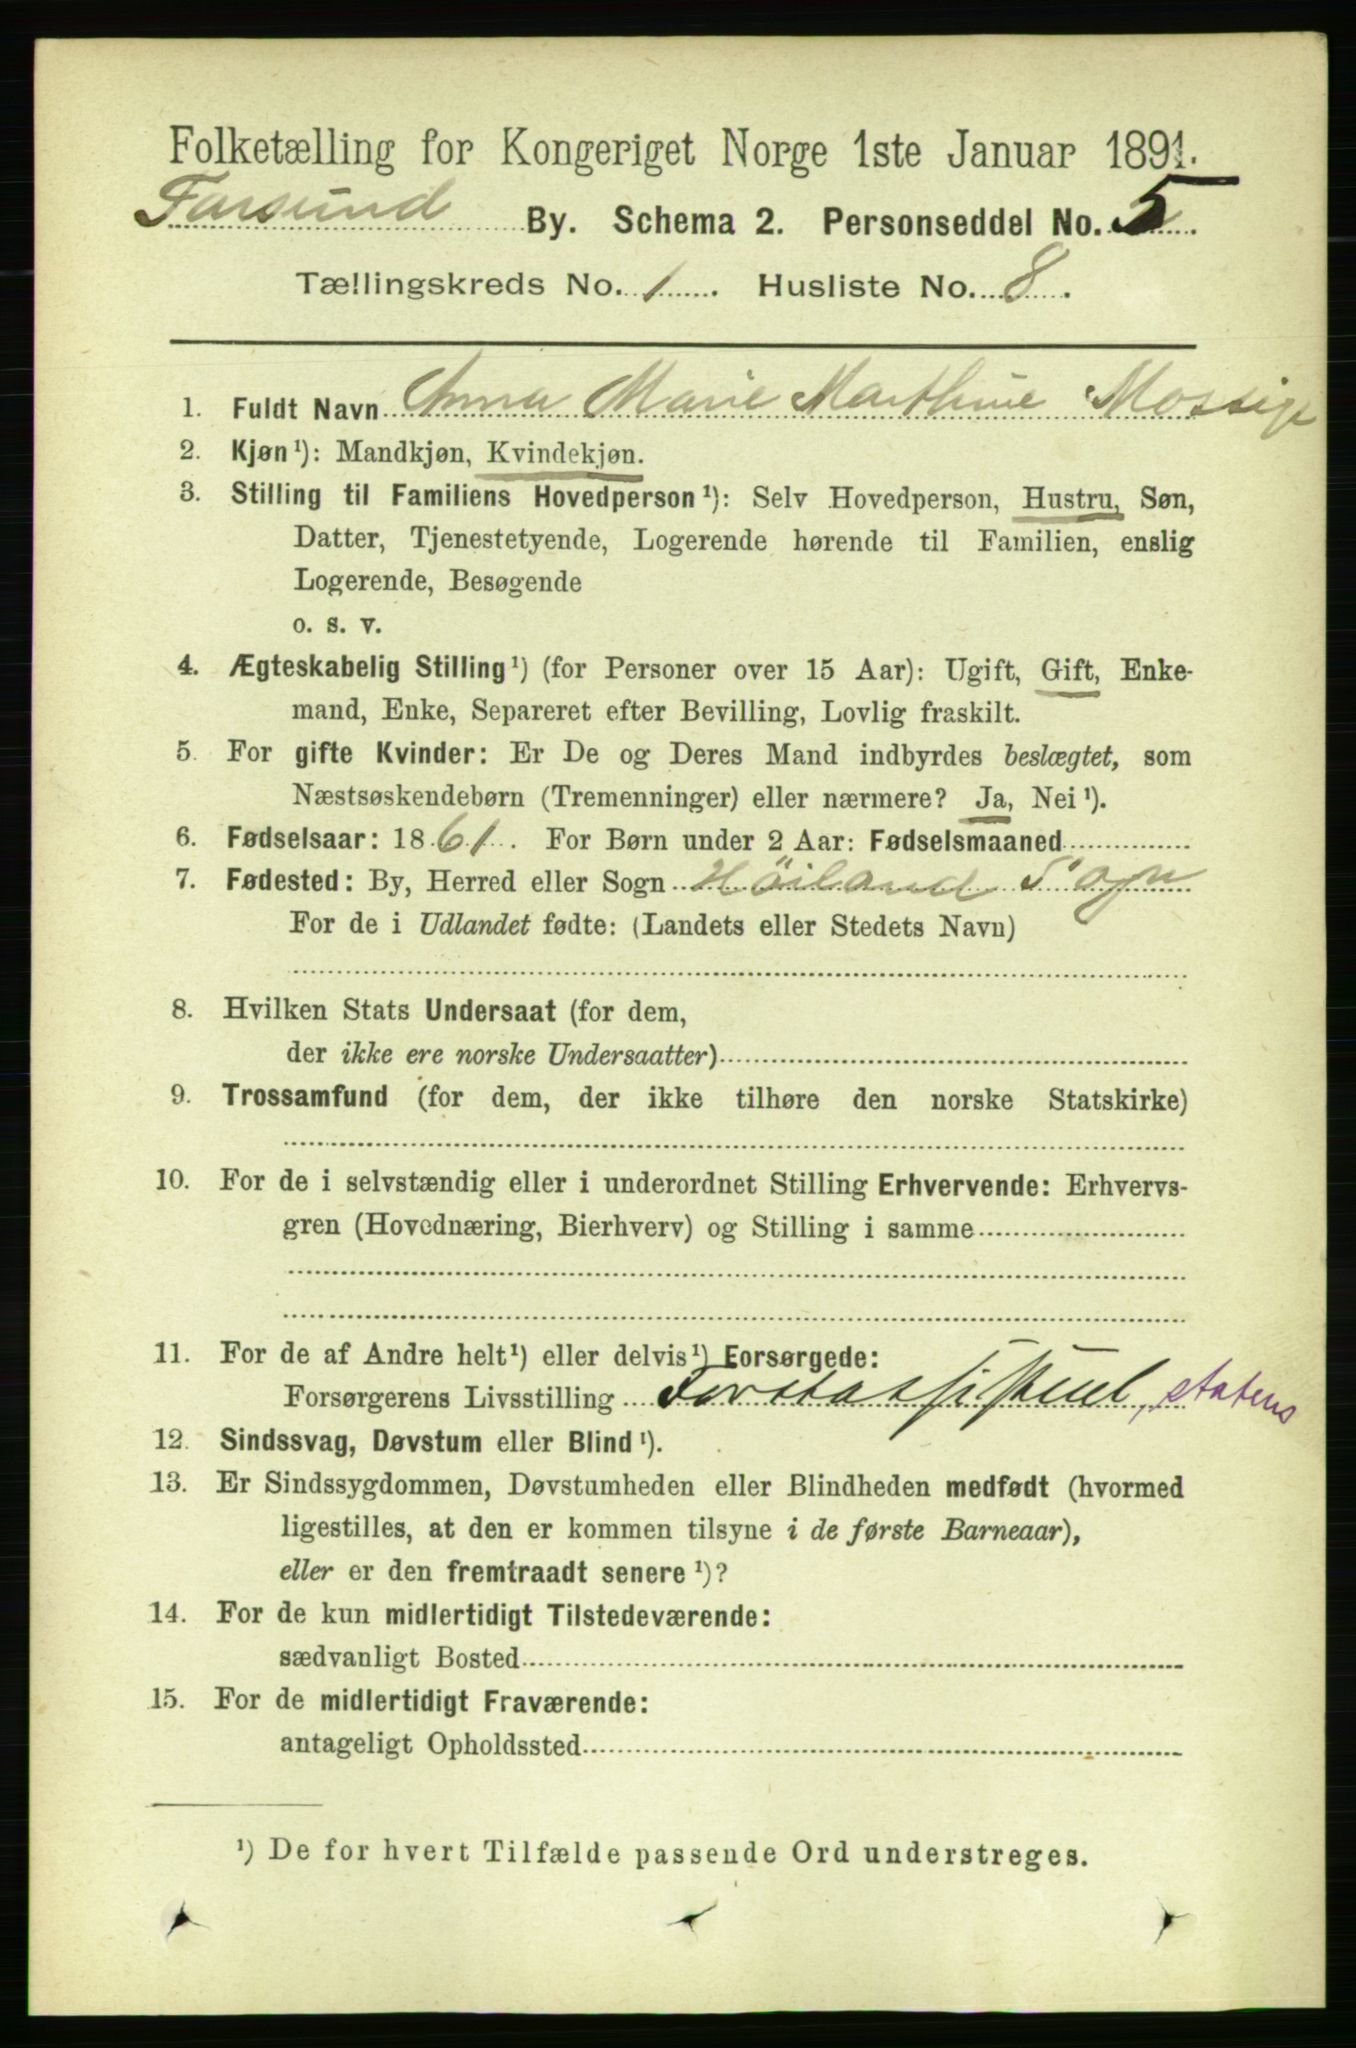 Folketælling for Kongeriget Norge 1ste Januar 1891.
Farsund By. Schema 2. Personseddel No. 5
Tællingskreds No. 1 . Husliste No. 8 .
1. Fuldt Navn Anna Marie Marthine Mossige
2. Kjøn ¹): Mandkjøn, Kvindekjøn.
3. Stilling til Familiens Hovedperson ¹): Selv Hovedperson, Hustru, Søn,
Datter, Tjenestetyende, Logerende hørende til Familien, enslig
Logerende, Besøgende
o. s. v.
4. Ægteskabelig Stilling ¹) (for Personer over 15 Aar): Ugift, Gift, Enke-
mand, Enke, Separeret efter Bevilling, Lovlig fraskilt.
5. For gifte Kvinder: Er De og Deres Mand indbyrdes beslægtet, som
Næstsøskendebørn (Tremenninger) eller nærmere? Ja, Nei ¹).
6. Fødselsaar: 1861. For Børn under 2 Aar: Fødselsmaaned
7. Fødested: By, Herred eller Sogn Höiland Sogn
For de i Udlandet fødte: (Landets eller Stedets Navn)
8. Hvilken Stats Undersaat (for dem,
der ikke ere norske Undersaatter)
9. Trossamfund (for dem, der ikke tilhøre den norske Statskirke)
10. For de i selvstændig eller i underordnet Stilling Erhvervende: Erhvervs-
gren (Hovednæring, Bierhverv) og Stilling i samme
11. For de af Andre helt ¹) eller delvis ¹) Forsørgede:
Forsørgerens Livsstilling statens
12. Sindssvag, Døvstum eller Blind ¹).
13. Er Sindssygdommen, Døvstumheden eller Blindheden medfødt (hvormed
ligestilles, at den er kommen tilsyne i de første Barneaar),
eller er den fremtraadt senere ¹)?
14. For de kun midlertidigt Tilstedeværende:
sædvanligt Bosted
15. For de midlertidigt Fraværende:
antageligt Opholdssted
¹) De for hvert Tilfælde passende Ord understreges.